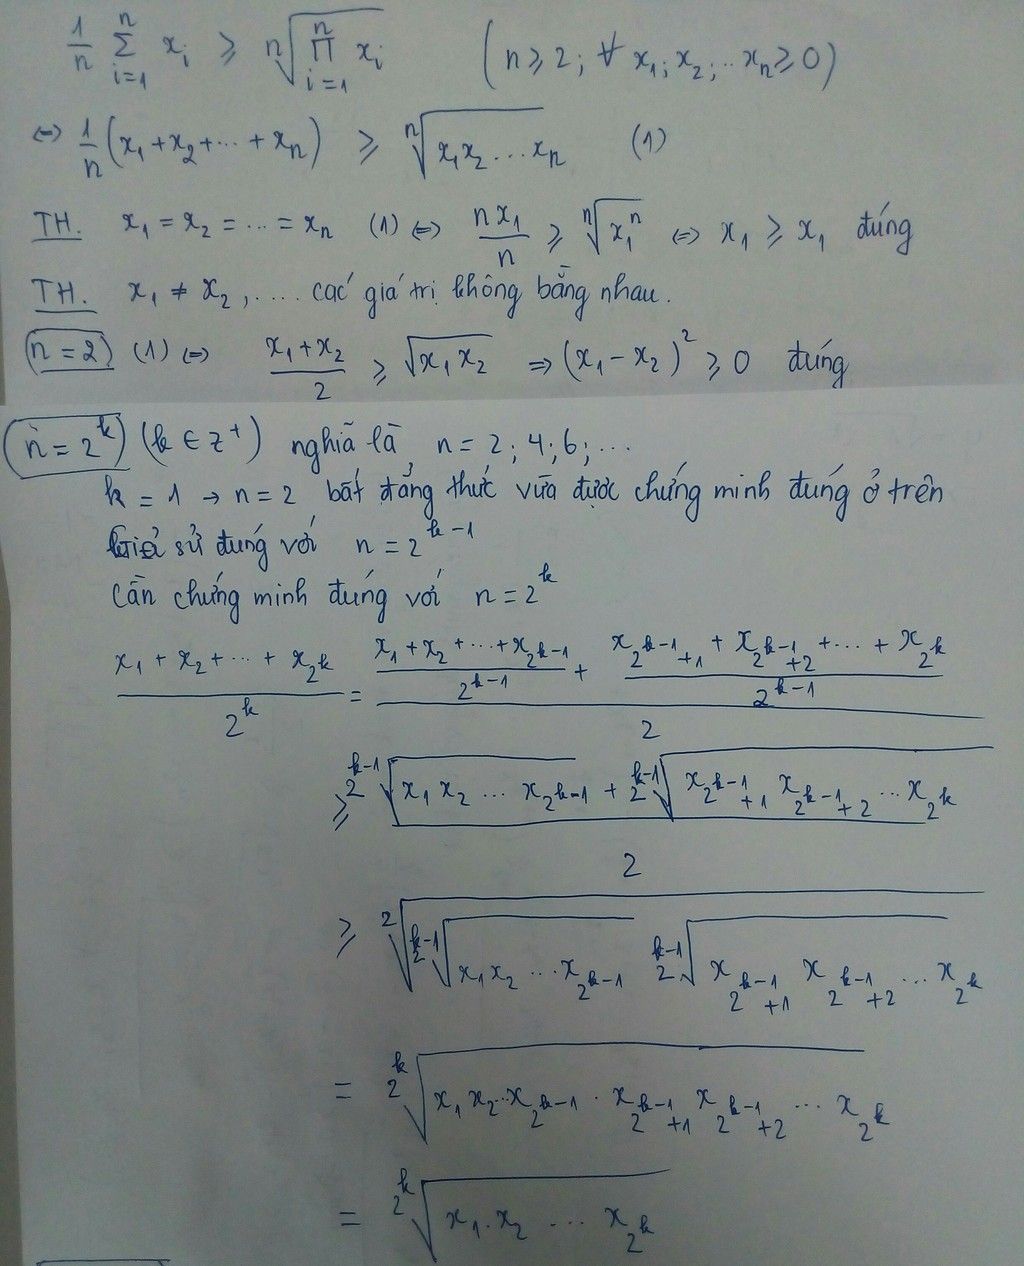 1/n ∑_{i=1}^{n} x_i ≥ ⁿ√(∏_{i=1}^{n} x_i) (n ≥ 2; ∀ x_1; x_2; .. x_n ≥ 0)
⇔ 1/n (x_1 + x_2 + ... + x_n) ≥ ⁿ√(x_1 x_2 ... x_n) (1)
TH. x_1 = x_2 = ... = x_n (1) ⇔ n x_1 / n ≥ ⁿ√(x_1^n) ⇔ x_1 ≥ x_1 đúng
TH. x_1 ≠ x_2, .... các giá trị không bằng nhau.
n = 2 (1) ⇔ (x_1 + x_2)/2 ≥ √(x_1 x_2) ⇒ (x_1 - x_2)^2 ≥ 0 đúng
n = 2^k (k ∈ Z^+) nghĩa là n = 2; 4; 6; ...
k = 1 → n = 2 bất đẳng thức vừa được chứng minh đúng ở trên
Giả sử đúng với n = 2^{k-1}
Cần chứng minh đúng với n = 2^k
(x_1 + x_2 + ... + x_{2^k}) / 2^k = ((x_1 + x_2 + ... + x_{2^{k-1}}) / 2^{k-1} + (x_{2^{k-1}+1} + x_{2^{k-1}+2} + ... + x_{2^k}) / 2^{k-1}) / 2
≥ (^{2^{k-1}}√(x_1 x_2 ... x_{2^{k-1}}) + ^{2^{k-1}}√(x_{2^{k-1}+1} x_{2^{k-1}+2} ... x_{2^k})) / 2
≥ ²√(^{2^{k-1}}√(x_1 x_2 ... x_{2^{k-1}}) ^{2^{k-1}}√(x_{2^{k-1}+1} x_{2^{k-1}+2} ... x_{2^k}))
= ^{2^k}√(x_1 x_2 .. x_{2^{k-1}} . x_{2^{k-1}+1} x_{2^{k-1}+2} ... x_{2^k})
= ^{2^k}√(x_1 . x_2 ... x_{2^k})